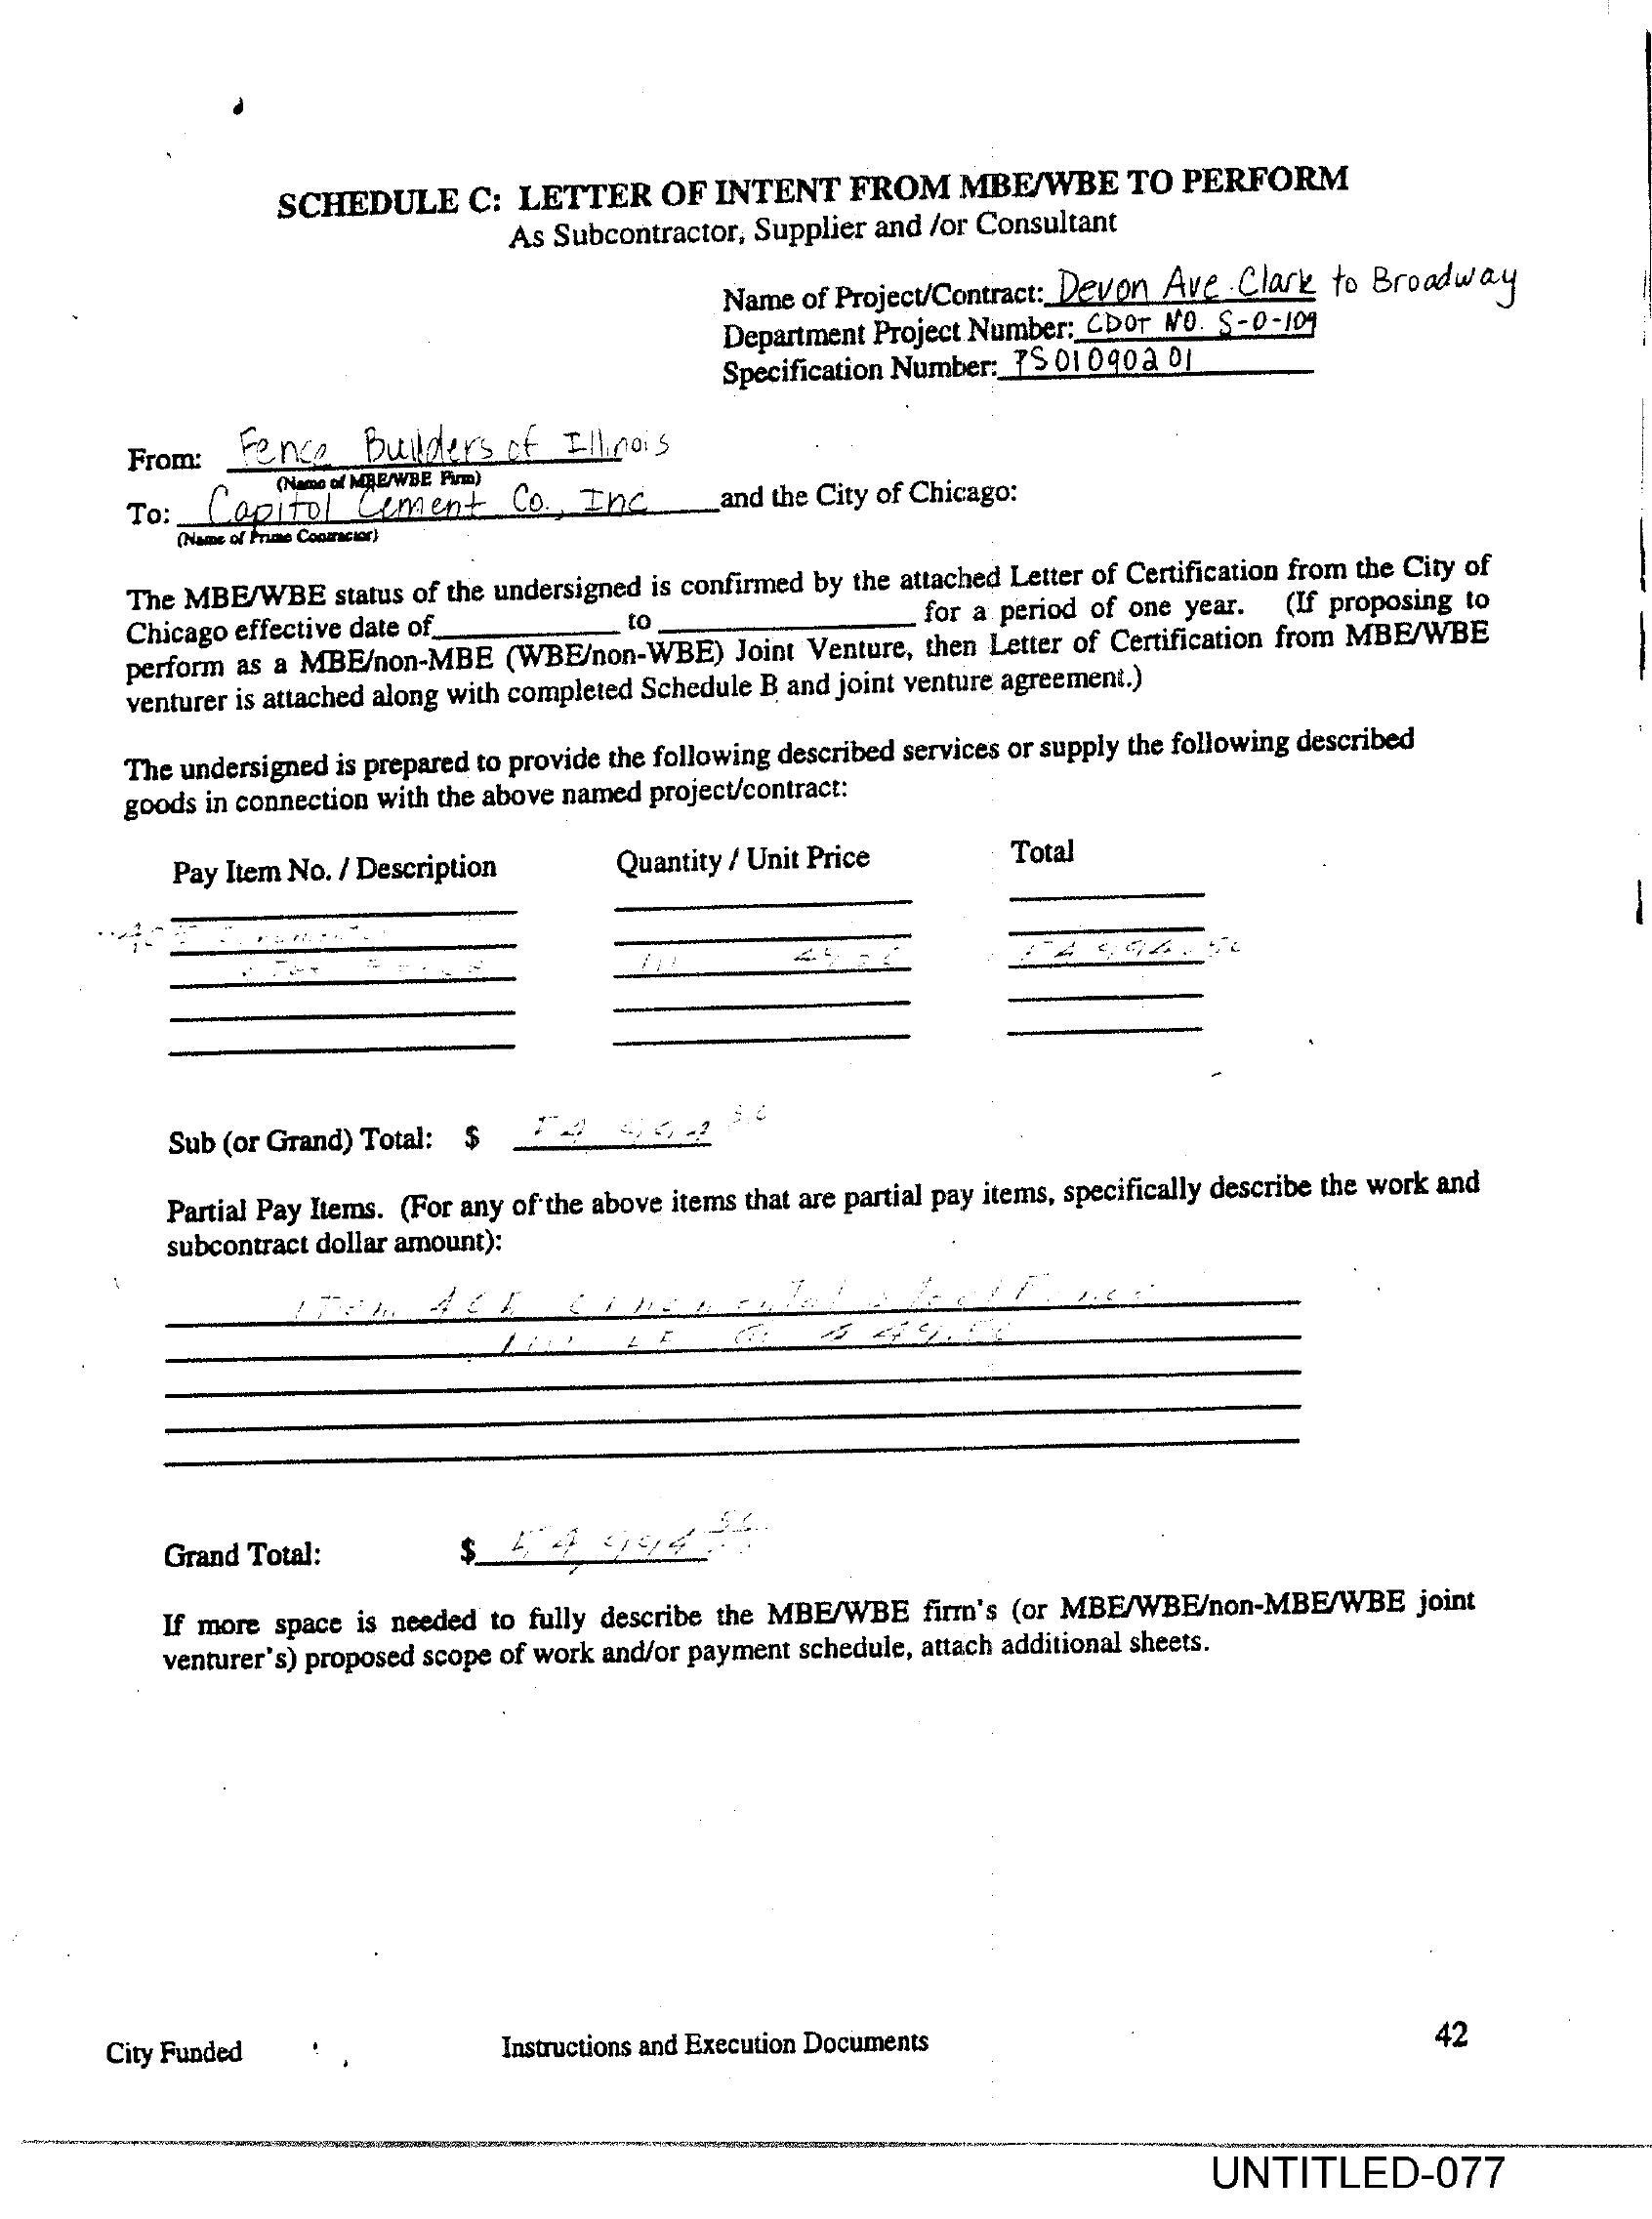 SCHEDULE C: LETTER OF INTENT FROM MBE/WBE TO PERFORM
As Subcontractor, Supplier and /or Consultant
Name of Project/Contract: Devon Ave Clark to Broadway
Department Project Number: CDOT NO. S-0-109
Specification Number: PS01090201
From: Fence Builders of Illinois
(Name of MBE/WBE Firm)
To: Capitol Cement Co., Inc and the City of Chicago:
(Name of Prime Contractor)
The MBE/WBE status of the undersigned is confirmed by the attached Letter of Certification from the City of
Chicago effective date of to for a period of one year. (If proposing to
perform as a MBE/non-MBE (WBE/non-WBE) Joint Venture, then Letter of Certification from MBE/WBE
venturer is attached along with completed Schedule B and joint venture agreement.)
The undersigned is prepared to provide the following described services or supply the following described
goods in connection with the above named project/contract:
Pay Item No. / Description Quantity / Unit Price Total
Sub (or Grand) Total: $
Partial Pay Items. (For any of the above items that are partial pay items, specifically describe the work and
subcontract dollar amount):
Item
LF @
Grand Total: $ 54,994
If more space is needed to fully describe the MBE/WBE firm's (or MBE/WBE/non-MBE/WBE joint
venturer's) proposed scope of work and/or payment schedule, attach additional sheets.
City Funded Instructions and Execution Documents 42
UNTITLED-077